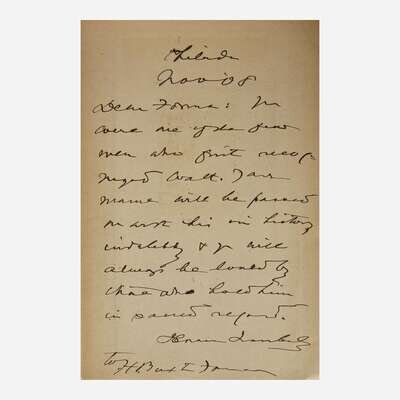 Philada
Nov '08
Dear Forman: You
were one of the few
men who first recog
nized Walt. Your
name will be passed
on with his in history
indelibly & you will
always be loved by
those who hold him
in sacred regard.
Horace Traubel
to H Buxton Forman